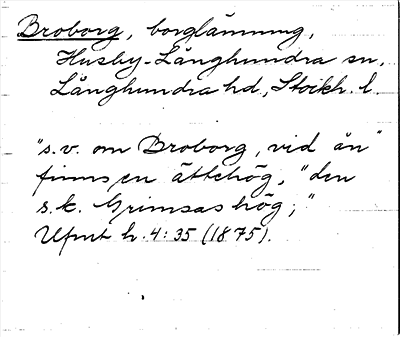 Broborg, borglämning,
Husby-Långhundra sn,
Långhundra hd, Stockh. l.
"s.v. om Broborg, vid ån"
finns en ättehög, "den
s.k. Grimsas hög;"
Ufmt h. 4: 35 (1875).